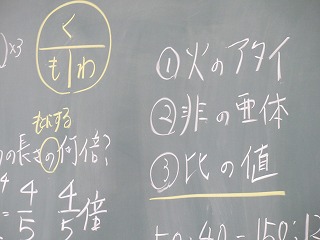 )×3
く
も わ
もとにする
の長さの何倍?
4
= 4/5 4/5倍
①火のアタイ
②非の亜体
③比の値
50:40=150:12